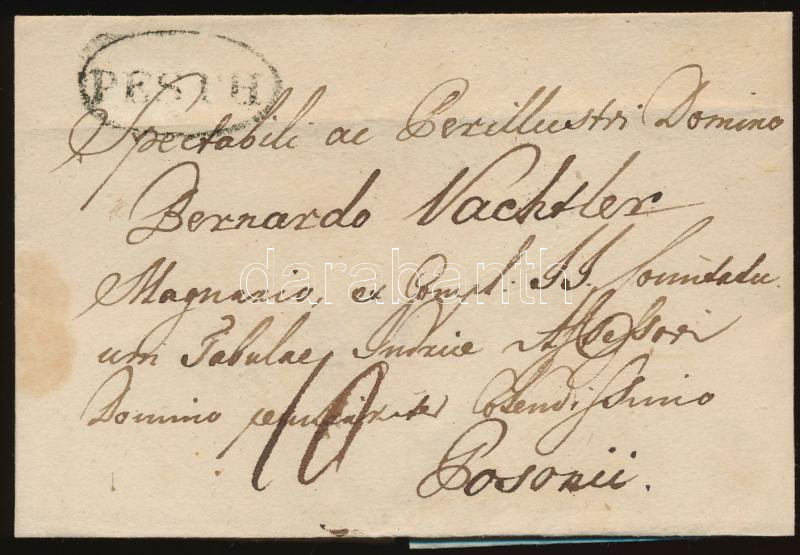 PESTH
Spectabili ac Perillustri Domino
Bernardo Vachtler
Magnario, et Compl. II. Comitatu
um Tabulae Indriae Assessori
Domino Colendissimo
10
Posonii.
darabanth